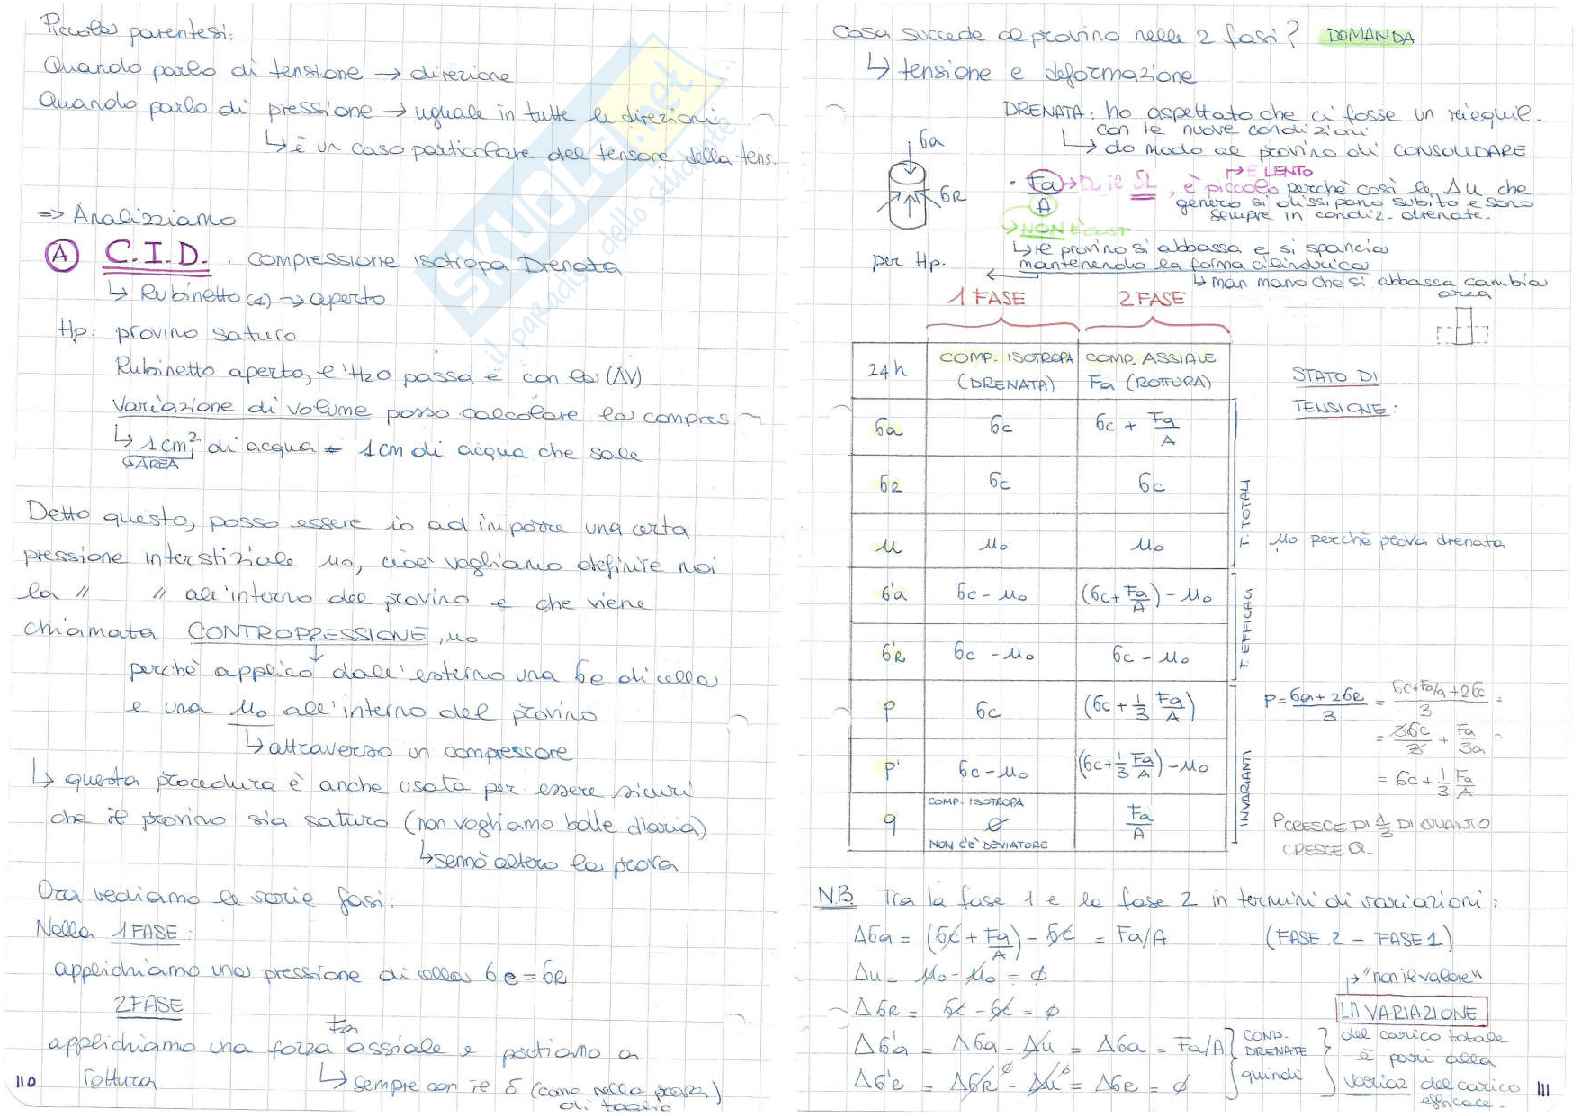 Piccola parentesi:
Quando parlo di tensione → direzione
Quando parlo di pressione → uguale in tutte le direzioni
↳ è un caso particolare del tensore della tens.
=> Analizziamo
A C.I.D. compressione isotropa Drenata
↳ Rubinetto (a) → aperto
Hp: provino saturo
Rubinetto aperto, l'H2O passa e con la (ΔV)
variazione di volume posso calcolare la compres
↳ 1cm² di acqua = 1cm di acqua che sale
↳AREA
Detto questo, posso essere io ad imporre una certa
pressione interstiziale u0, cioè vogliamo definire noi
la " " all'interno del provino e che viene
chiamata CONTROPRESSIONE, u0
perchè applico dall'esterno una σc di cella
e una u0 all'interno del provino
↳ attraverso un compressore
↳ questa procedura è anche usata per essere sicuri
che il provino sia saturo (non vogliamo bolle d'aria)
↳ sennò altero la prova
Ora vediamo le varie fasi:
Nella 1FASE:
applichiamo una pressione di cella σc = σR
2FASE
Fa
applichiamo una forza assiale e portiamo a
rottura
↳ sempre con il δ (come nella prova)
di taglio
110
Cosa succede al provino nelle 2 fasi? DOMANDA
↳ tensione e deformazione
DRENATA: ho aspettato che ci fosse un riequil.
con le nuove condizioni
↳ do modo al provino di CONSOLIDARE
σa
σR
· Fa → , è piccolo perchè così la Δu che
→ È LENTO
A
genero si dissipano subito e sono
sempre in condiz. drenate.
→ NON È COST
↳ il provino si abbassa e si spancia
per Hp. mantenendo la forma cilindrica
↳ man mano che si abbassa cambia
area
1 FASE 2 FASE
24h COMP. ISOTROPA (DRENATA) COMP. ASSIALE Fa (ROTTURA)
σa σc σc + Fa/A
σR σc σc
u u0 u0
σ'a σc - u0 (σc + Fa/A) - u0
σ'R σc - u0 σc - u0
p σc (σc + 1/3 Fa/A)
p' σc - u0 (σc + 1/3 Fa/A) - u0
q COMP. ISOTROPA ∅ NON C'È DEVIATORE Fa/A
T. TOTALI
T. EFFICACI
INVARIANTI
STATO DI
TENSIONE:
u0 perchè prova drenata
p = σa + 2σR / 3 = σc + Fa/A + 2σc / 3 =
= 3σc/3 + Fa/3a =
= σc + 1/3 Fa/A
P CRESCE DI 1/3 DI QUANTO
CRESCE Q.
N.B. Tra la fase 1 e la fase 2 in termini di variazioni:
Δσa = (σc + Fa/A) - σc = Fa/A (FASE 2 - FASE 1)
Δu = u0 - u0 = ∅ ↳ "non il valore"
ΔσR = σc - σc = ∅ LA VARIAZIONE
Δσ'a = Δσa - Δu = Δσa = Fa/A COND. DRENATE del carico totale
è pari alla
Δσ'R = ΔσR - Δu = ΔσR = ∅ quindi variaz del carico
efficace.
111
SKUOLA.net
il paradiso dello studente